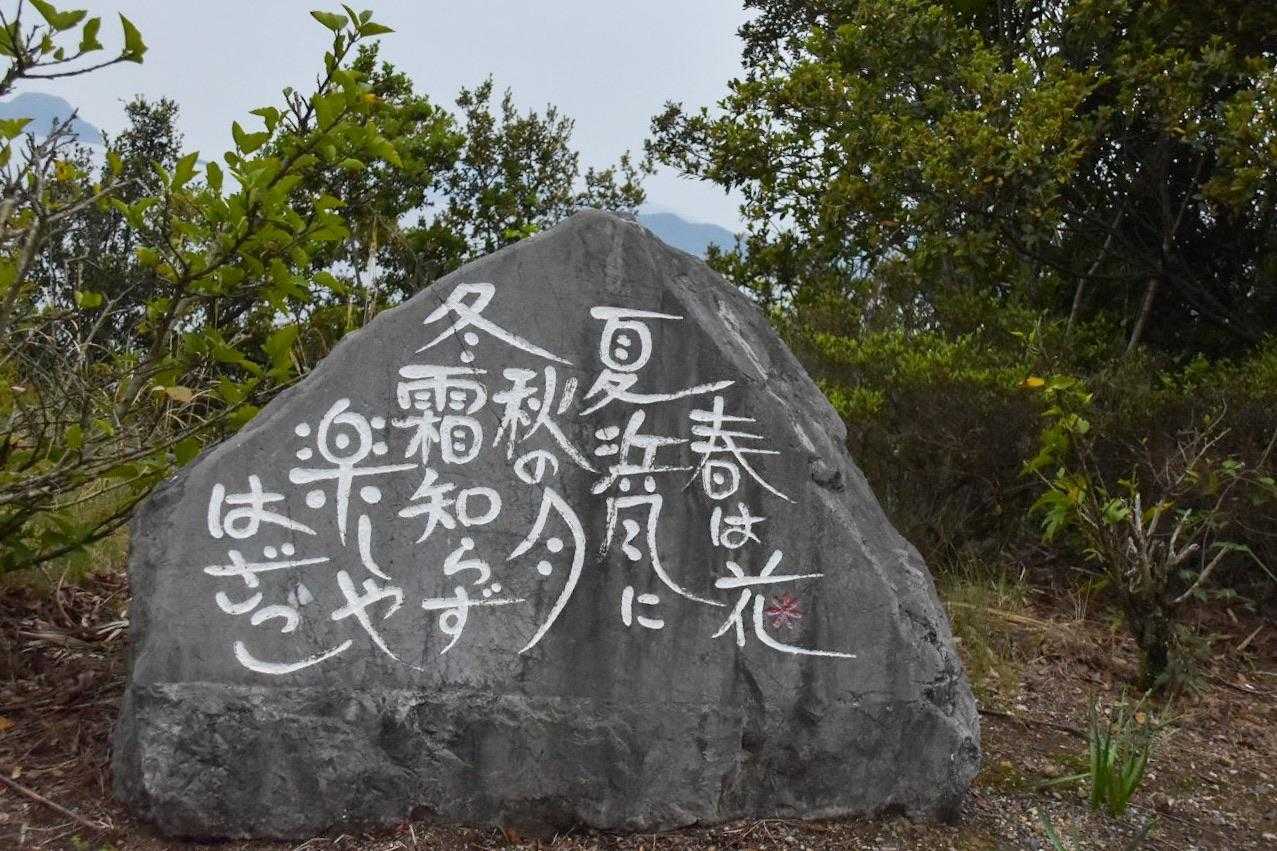 春は花
夏浜風に
秋の月
冬霜知らず
楽しや
はざつこ